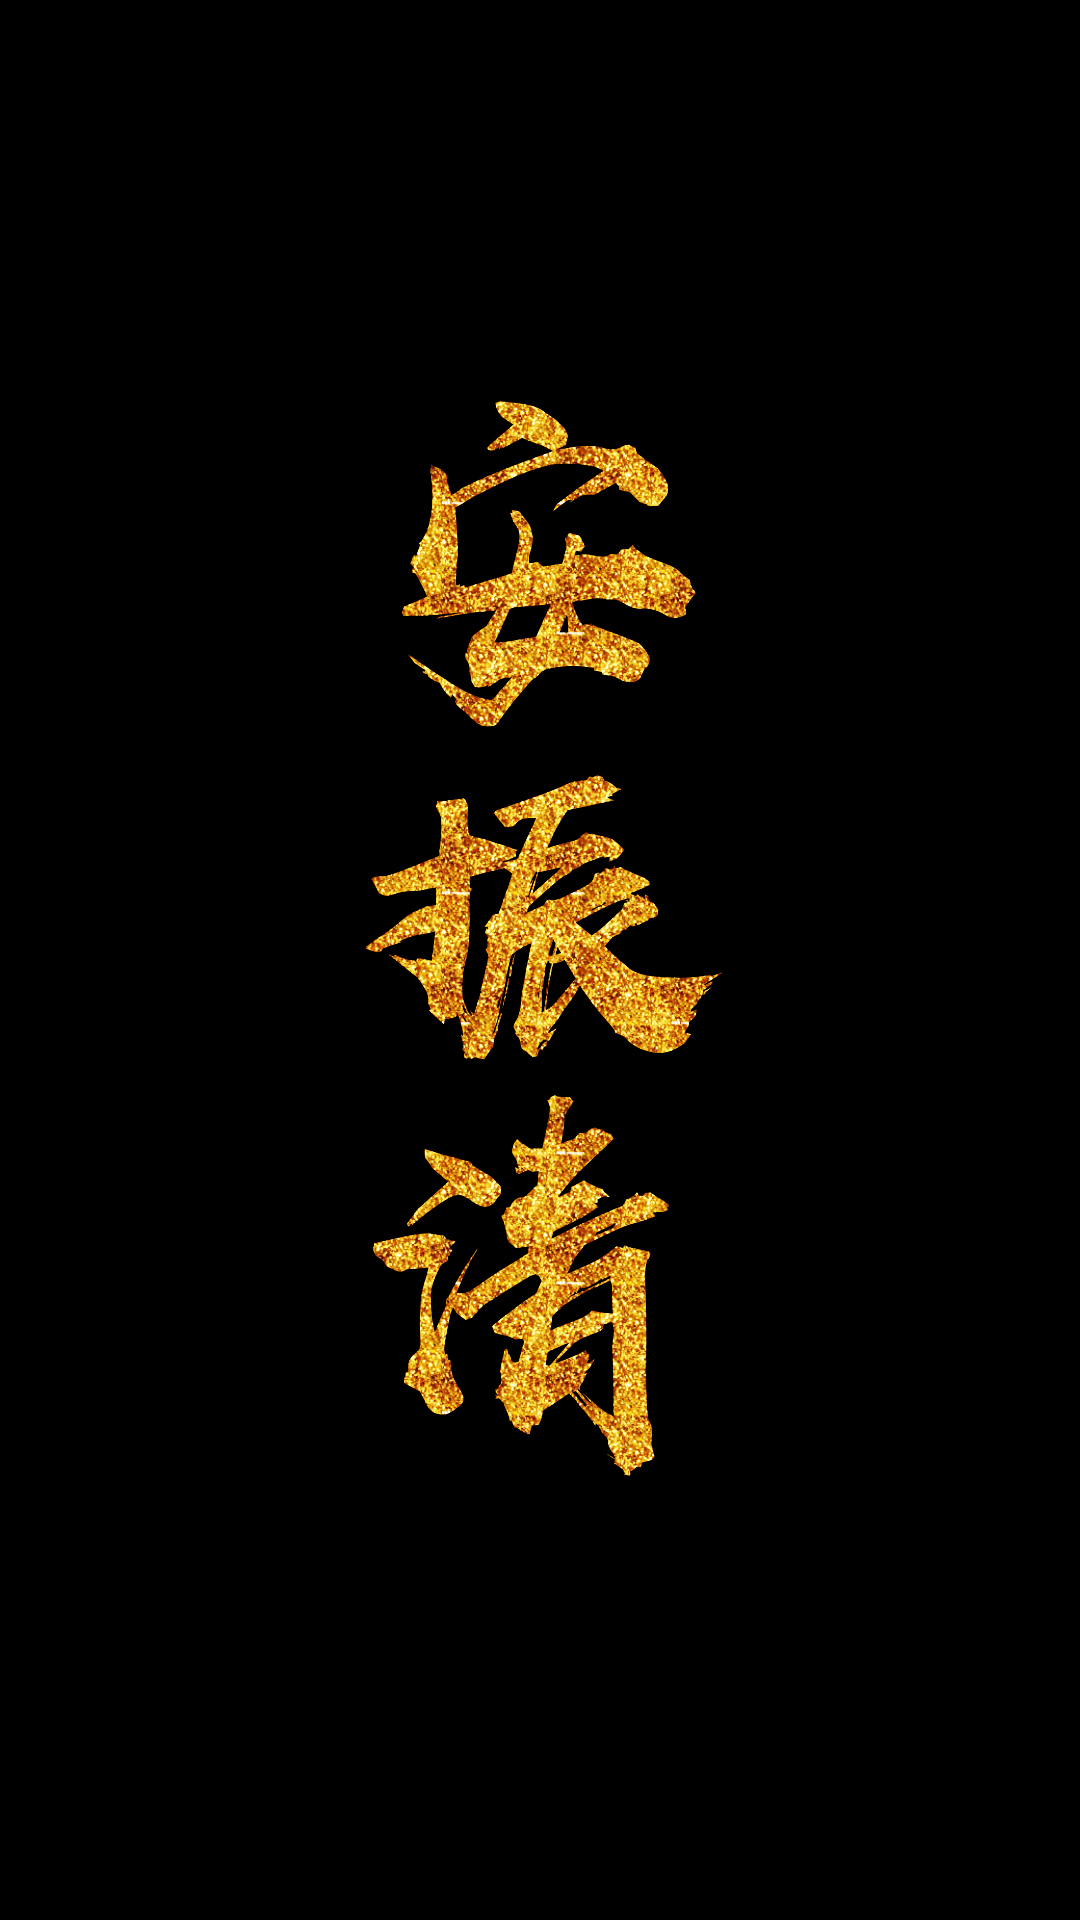 安振清